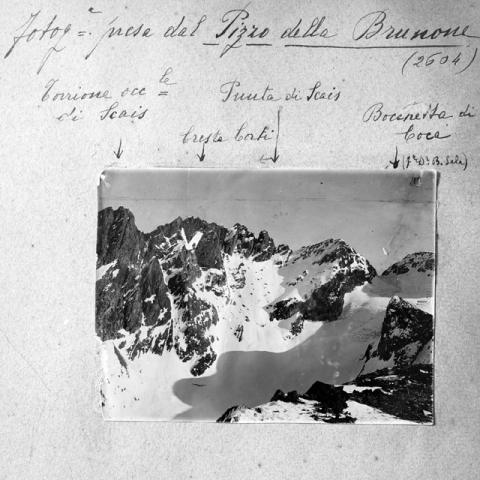 fotogª. presa dal Pizzo della Brunone
(2604)
Torrione occle
di Scais
Cresta Corti
Punta di Scais
Bocchetta di
Coca